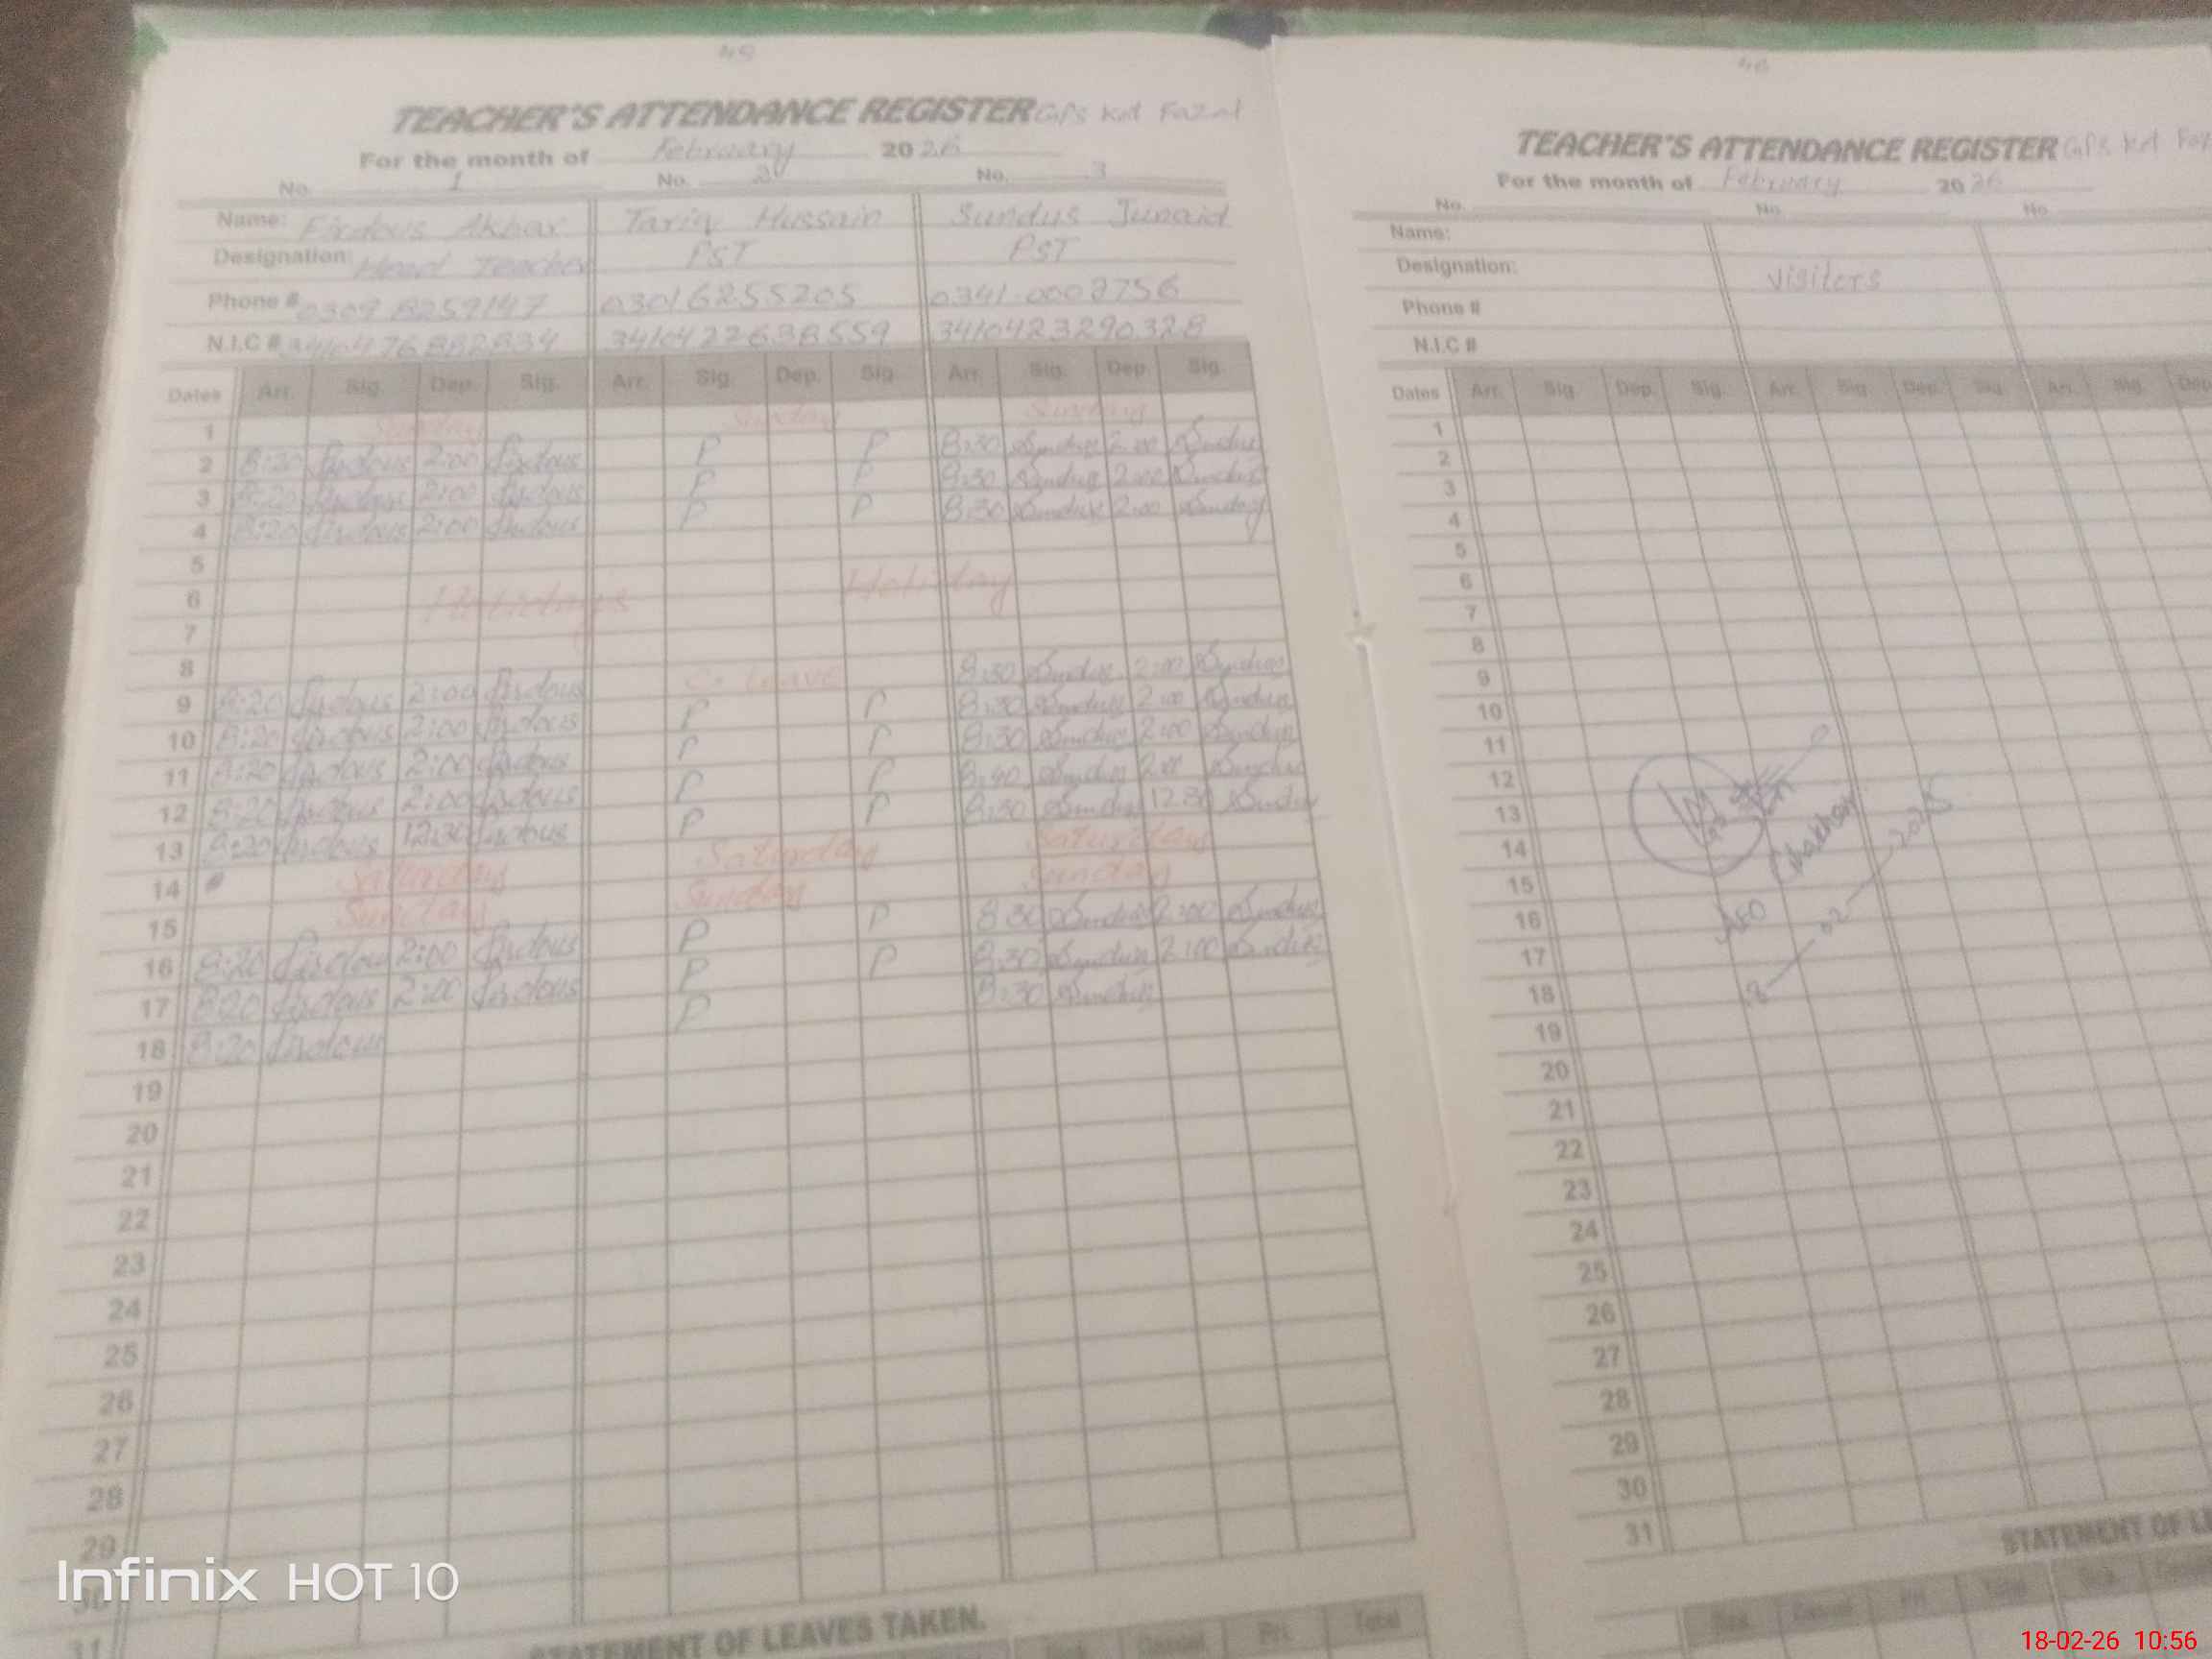 45
TEACHER'S ATTENDANCE REGISTER GPS Kot Fazal
For the month of February 2026
No. 1 No. 2 No. 3
Name: Firdous Akhar Tariq Hussain Sundus Junaid
Designation: Head Teacher PST PST
Phone # 0309 8259147 03016255205 0341.0002756
N.I.C # 3410422638559 3410423290328
Dates Arr. Sig. Dep. Sig. Arr. Sig. Dep. Sig. Arr. Sig. Dep. Sig.
1 Sunday Sunday Sunday
2 8:20 Firdous 2:00 Firdous P P 8:30 Sundus 2:00 Sundus
3 8:20 Firdous 2:00 Firdous P P 8:30 Sundus 2:00 Sundus
4 8:20 Firdous 2:00 Firdous P P 8:30 Sundus 2:00 Sundus
5
6 Holidays Holiday
7
8
9 8:20 Firdous 2:00 Firdous C. Leave 8:30 Sundus 2:00 Sundus
10 8:20 Firdous 2:00 Firdous P P 8:30 Sundus 2:00 Sundus
11 8:20 Firdous 2:00 Firdous P P 8:30 Sundus 2:00 Sundus
12 8:20 Firdous 2:00 Firdous P P Sundus 2:00 Sundus
13 8:20 Firdous 12:30 Firdous P P 8:30 Sundus 12:30 Sundus
14 Saturday Saturday Saturday
15 Sunday Sunday Sunday
16 8:20 Firdous 2:00 Firdous P P 8:30 Sundus 2:00 Sundus
17 8:20 Firdous 2:00 Firdous P P 8:30 Sundus 2:00 Sundus
18 8:20 Firdous P 8:30 Sundus
19
20
21
22
23
24
25
26
27
28
29
30
31
STATEMENT OF LEAVES TAKEN.
Casual Pri. Total
46
TEACHER'S ATTENDANCE REGISTER GPS Kot
For the month of February 2026
No. No. No.
Name:
Designation: Visiters
Phone #
N.I.C #
Dates Arr. Sig. Dep. Sig. Arr. Sig. Dep. Sig. Arr. Sig. Dep.
1
2
3
4
5
6
7
8
9
10
11
12
13
14
15
16
17
18
19
20
21
22
23
24
25
26
27
28
29
30
31
Ghakhar
AEO
STATEMENT OF
Casual Pri. Total
Infinix HOT 10
18-02-26 10:56